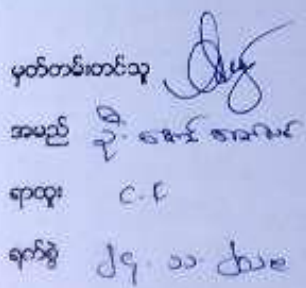 မှတ်တမ်းတင်သူ
အမည် ဦး အောင်
ရာထူး C.F
ရက်စွဲ ၂၄.၁၁.၂၀၁၈